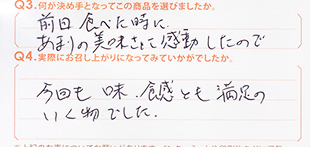 Q3.何が決め手となってこの商品を選びましたか。
前回食べた時に
あまりの美味さに感動したので
Q4.実際にお召し上がりになってみていかがでしたか。
今回も味、食感とも満足の
いく物でした。